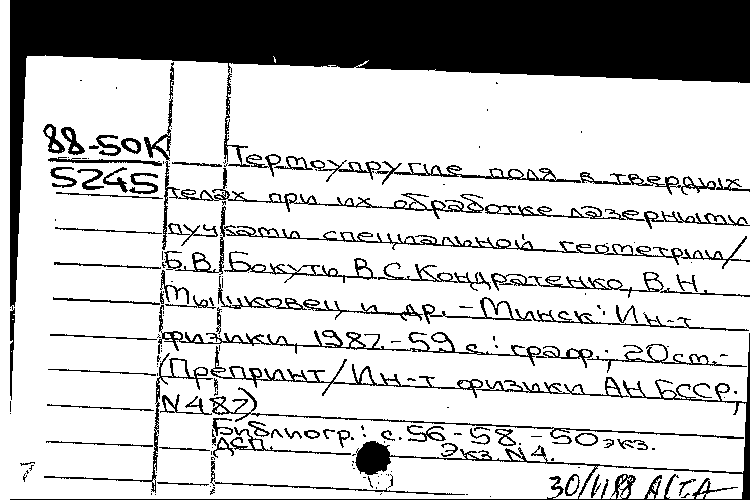 88-50К
5245
Термоупругие поля в твердых
телах при их обработке лазерными
пучками специальной геометрии/
Б.В. Бокуть, В.С. Кондратенко, В.Н.
Мышковец и др. - Минск: Ин-т
физики, 1987. - 59 с.: граф.; 20 см. -
(Препринт/Ин-т физики АН БССР;
N487)
Библиогр.: с. 56-58. - 50 экз.
ДСП. Экз. N4.